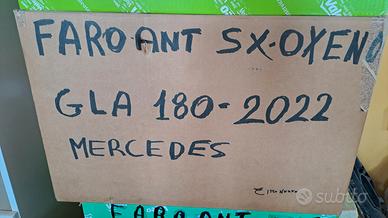 FARO ANT SX-OXEN
GLA 180-2022
MERCEDES
subito
FARO ANT